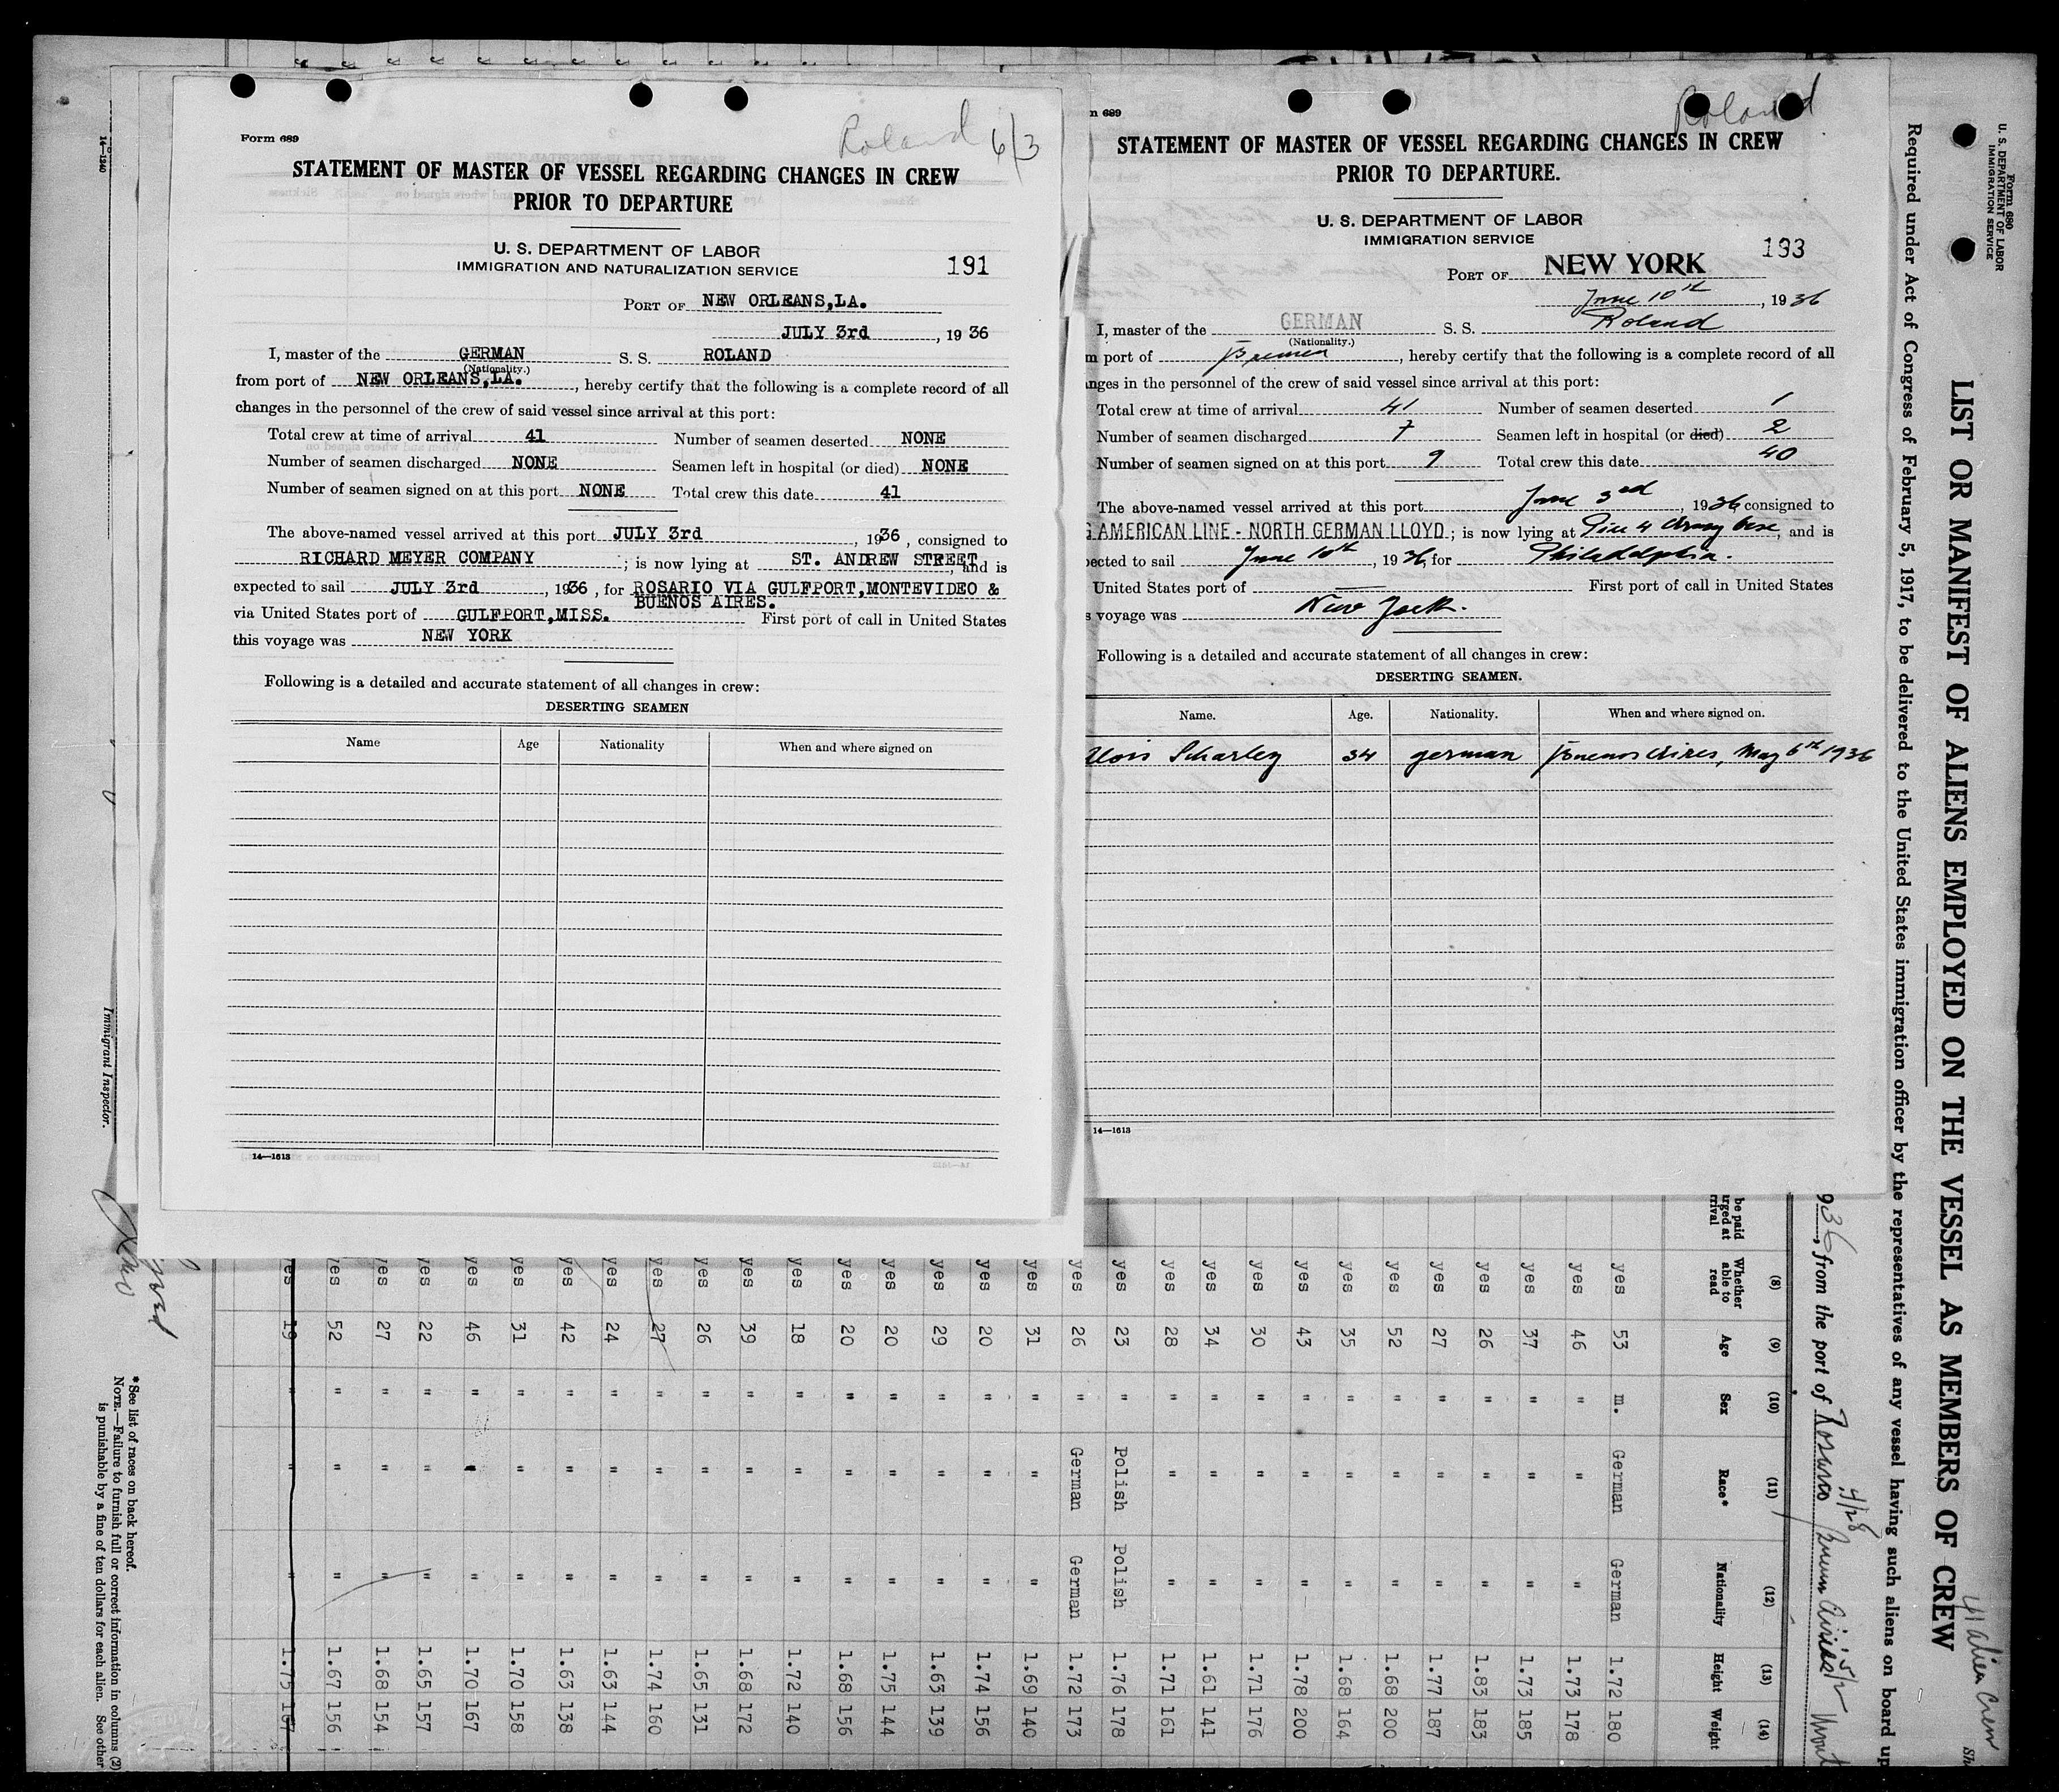 Form 689
Roland 6/3
STATEMENT OF MASTER OF VESSEL REGARDING CHANGES IN CREW
PRIOR TO DEPARTURE
U. S. DEPARTMENT OF LABOR
IMMIGRATION AND NATURALIZATION SERVICE
191
PORT OF NEW ORLEANS,LA.
JULY 3rd, 1936
I, master of the GERMAN S. S. ROLAND
(Nationality.)
from port of NEW ORLEANS,LA., hereby certify that the following is a complete record of all
changes in the personnel of the crew of said vessel since arrival at this port:
Total crew at time of arrival 41 Number of seamen deserted NONE
Number of seamen discharged NONE Seamen left in hospital (or died) NONE
Number of seamen signed on at this port NONE Total crew this date 41
The above-named vessel arrived at this port JULY 3rd, 1936, consigned to
RICHARD MEYER COMPANY; is now lying at ST. ANDREW STREET, and is
expected to sail JULY 3rd, 1936, for ROSARIO VIA GULFPORT,MONTEVIDEO &
BUENOS AIRES.
via United States port of GULFPORT,MISS. First port of call in United States
this voyage was NEW YORK
Following is a detailed and accurate statement of all changes in crew:
DESERTING SEAMEN
Name Age Nationality When and where signed on
14—1613
m 689
Roland
STATEMENT OF MASTER OF VESSEL REGARDING CHANGES IN CREW
PRIOR TO DEPARTURE.
U. S. DEPARTMENT OF LABOR
IMMIGRATION SERVICE
193
PORT OF NEW YORK
June 10th, 1936
I, master of the GERMAN S. S. Roland
(Nationality.)
m port of Bremen, hereby certify that the following is a complete record of all
nges in the personnel of the crew of said vessel since arrival at this port:
Total crew at time of arrival 41 Number of seamen deserted 1
Number of seamen discharged 7 Seamen left in hospital (or died) 2
Number of seamen signed on at this port 9 Total crew this date 40
The above-named vessel arrived at this port June 3rd, 1936, consigned to
G AMERICAN LINE - NORTH GERMAN LLOYD; is now lying at Pier 4 Army base, and is
pected to sail June 10th, 1936, for Philadelphia.
United States port of First port of call in United States
s voyage was New York.
Following is a detailed and accurate statement of all changes in crew:
DESERTING SEAMEN.
Name. Age. Nationality. When and where signed on.
Alois Scharley 34 german Buenos Aires, May 6th 1936
14—1613
Form 680
U. S. DEPARTMENT OF LABOR
IMMIGRATION SERVICE
LIST OR MANIFEST OF ALIENS EMPLOYED ON THE VESSEL AS MEMBERS OF CREW
41 alien Crew
Sh
Required under Act of Congress of February 5, 1917, to be delivered to the United States immigration officer by the representatives of any vessel having such aliens on board up
936, from the port of Rosario 4/28 Buenos Aires 5/2
be paid
arged at
rrival
(8) (9) (10) (11) (12) (13) (14)
Whether able to read Age Sex Race* Nationality Height Weight
yes 53 m. German German 1.72 180
yes 46 " " " 1.73 178
yes 37 " " " 1.73 185
yes 26 " " " 1.83 183
yes 27 " " " 1.77 187
yes 52 " " " 1.68 200
yes 35 " " " 1.68 164
yes 43 " " " 1.78 200
yes 30 " " " 1.71 176
yes 34 " " " 1.61 141
yes 28 " " " 1.71 161
yes 23 " Polish Polish 1.76 178
yes 26 " German German 1.72 173
yes 31 " " " 1.69 140
yes 20 " " " 1.74 156
yes 29 " " " 1.63 139
yes 20 " " " 1.75 144
yes 20 " " " 1.68 156
yes 18 " " " 1.72 140
yes 39 " " " 1.68 172
yes 26 " " " 1.65 131
yes 27 " " " 1.74 160
yes 24 " " " 1.63 144
yes 42 " " " 1.63 138
yes 31 " " " 1.70 158
yes 46 " " " 1.70 167
yes 22 " " " 1.65 157
yes 27 " " " 1.68 154
yes 52 " " " 1.67 156
yes 19 " " " 1.75 167
* See list of races on back hereof.
NOTE.—Failure to furnish full or correct information in columns (2)
is punishable by a fine of ten dollars for each alien. See other
Immigrant Inspector.
14—1240